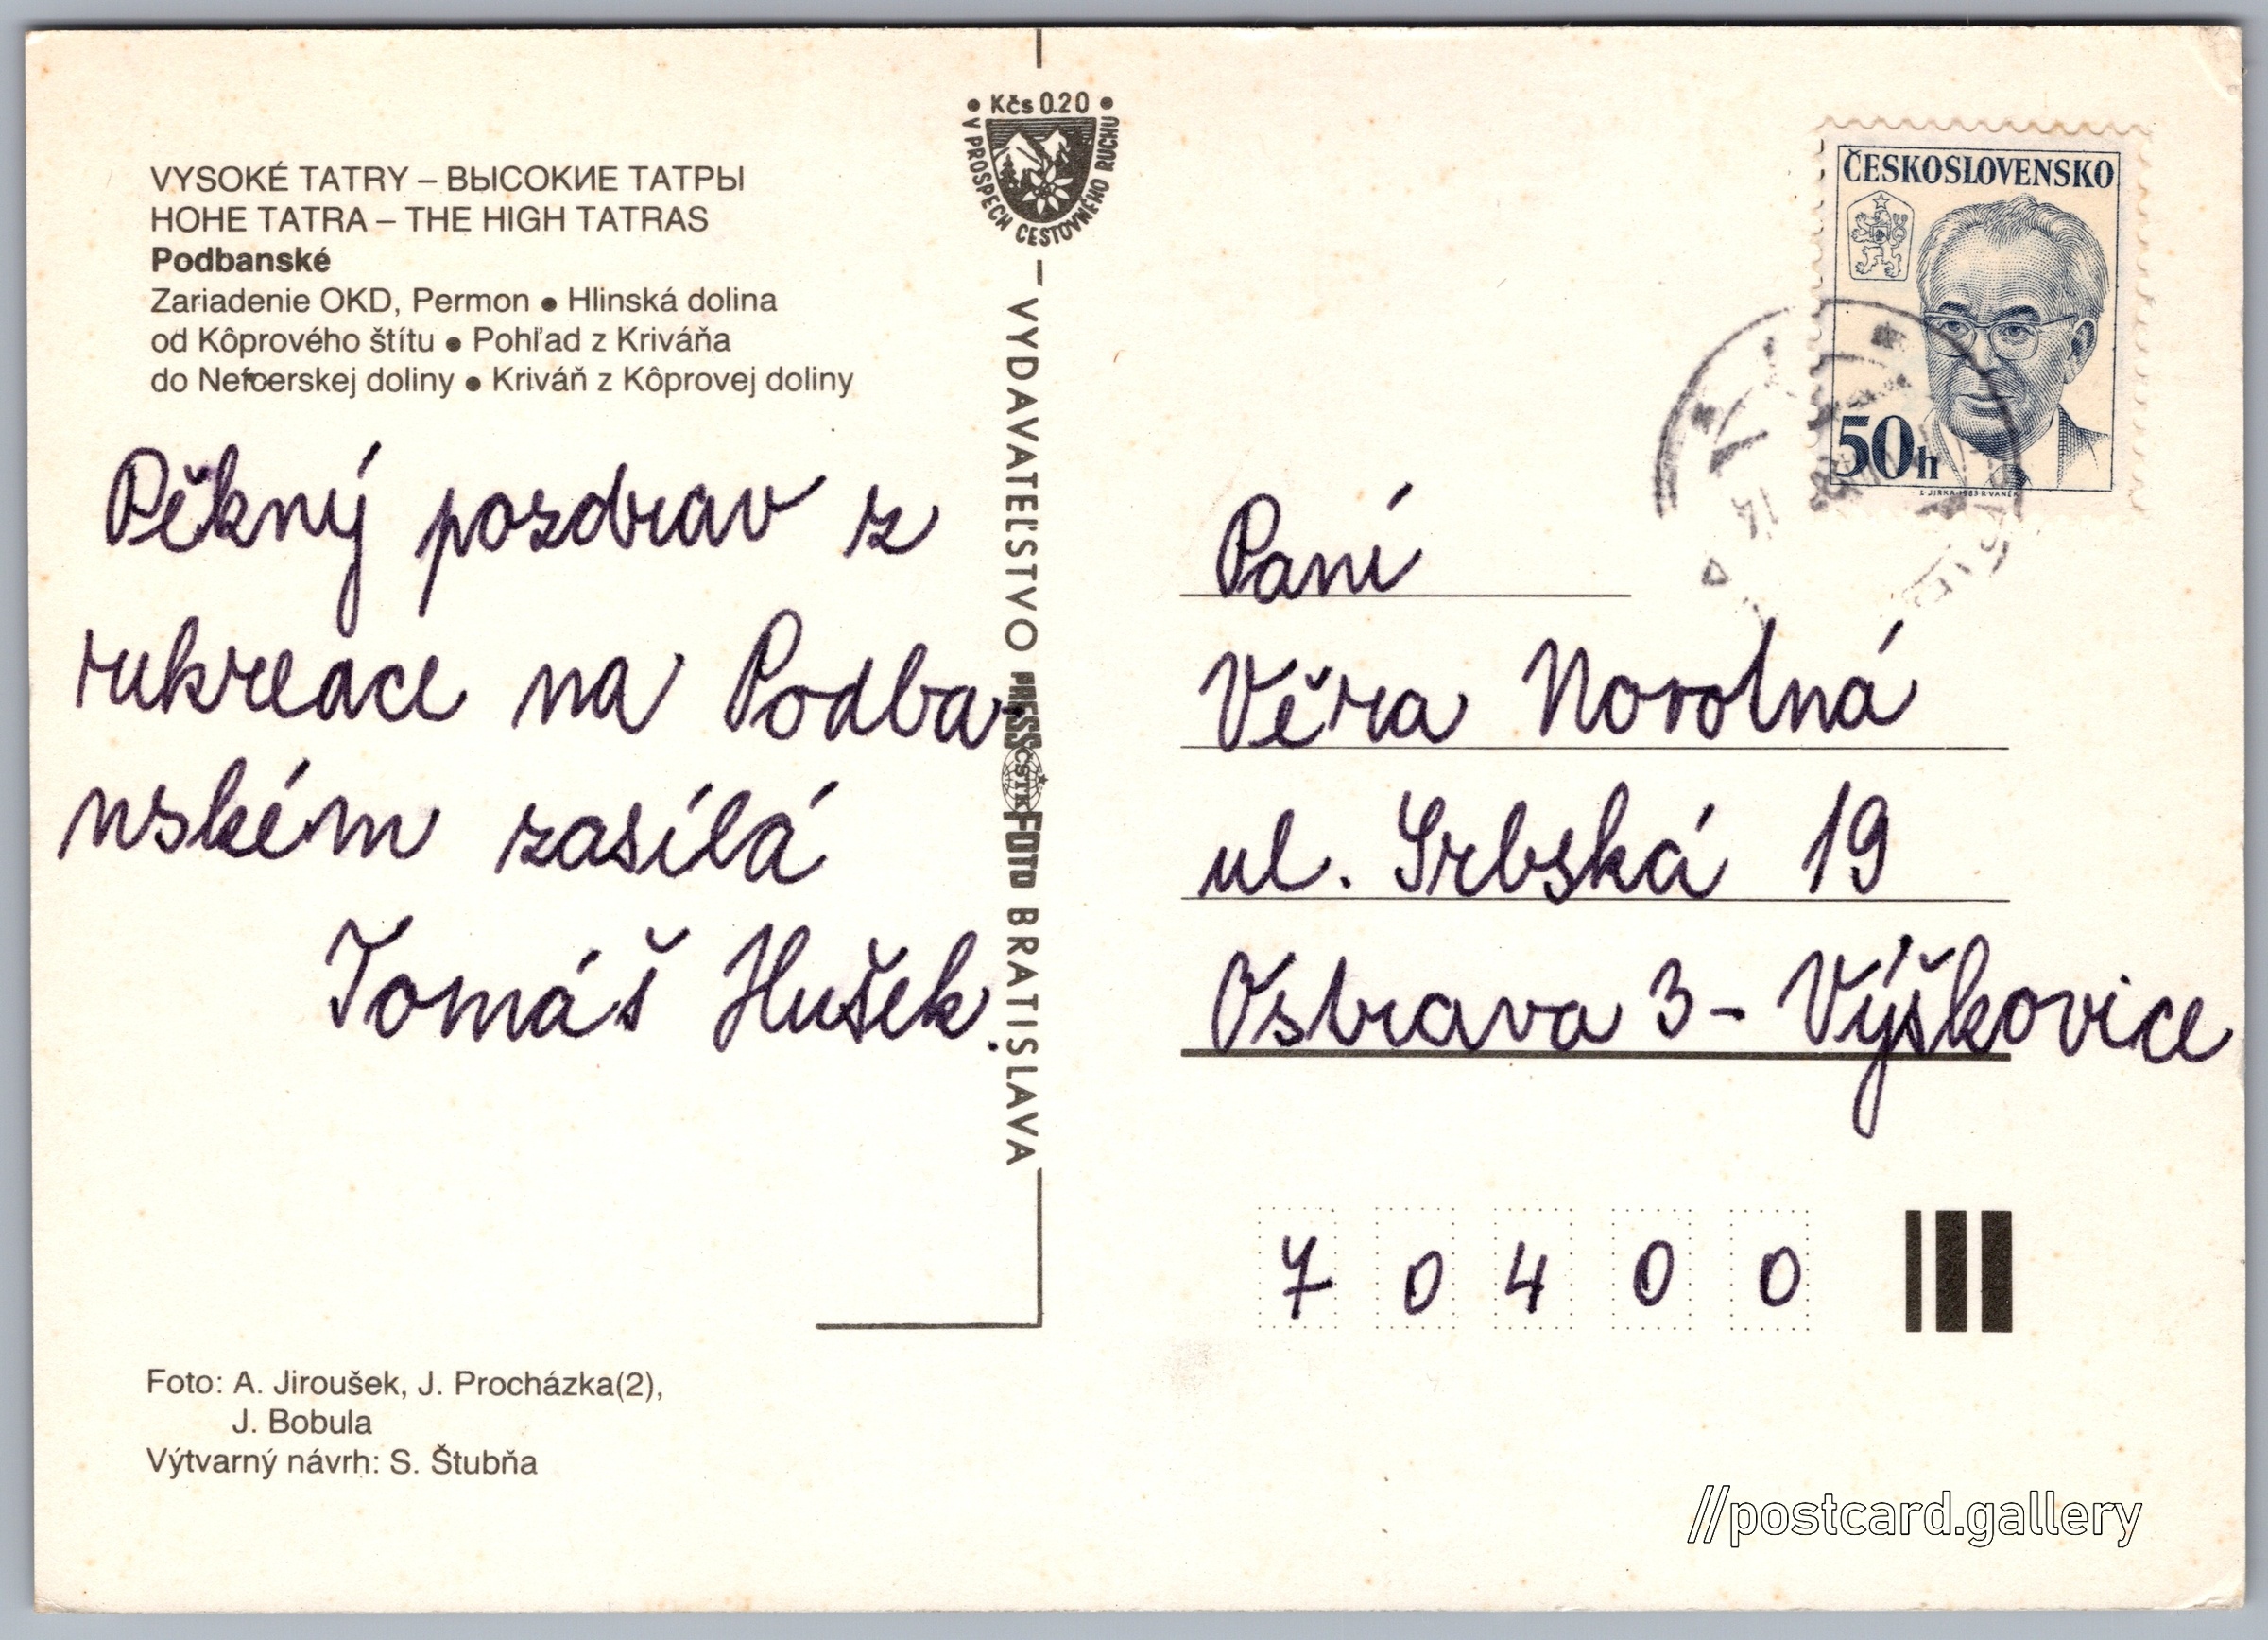 VYSOKÉ TATRY – ВЫСОКИЕ ТАТРЫ
HOHE TATRA – THE HIGH TATRAS
Podbanské
Zariadenie OKD, Permon ● Hlinská dolina
od Kôprového štítu ● Pohľad z Kriváňa
do Nefcerskej doliny ● Kriváň z Kôprovej doliny
Pěkný pozdrav z
rekreace na Podba
nském zasílá
Tomáš Hušek.
Foto: A. Jiroušek, J. Procházka(2),
J. Bobula
Výtvarný návrh: S. Štubňa
• Kčs 0.20 •
V PROSPECH CESTOVNÉHO RUCHU
– VYDAVATEĽSTVO PRESSFOTO BRATISLAVA
ČSTK
ČESKOSLOVENSKO
50h
L. JIRKA 1983 R. VANĚK
14
Paní
Věra Novotná
ul. Srbská 19
Ostrava 3 - Výškovice
7 0 4 0 0
//postcard.gallery